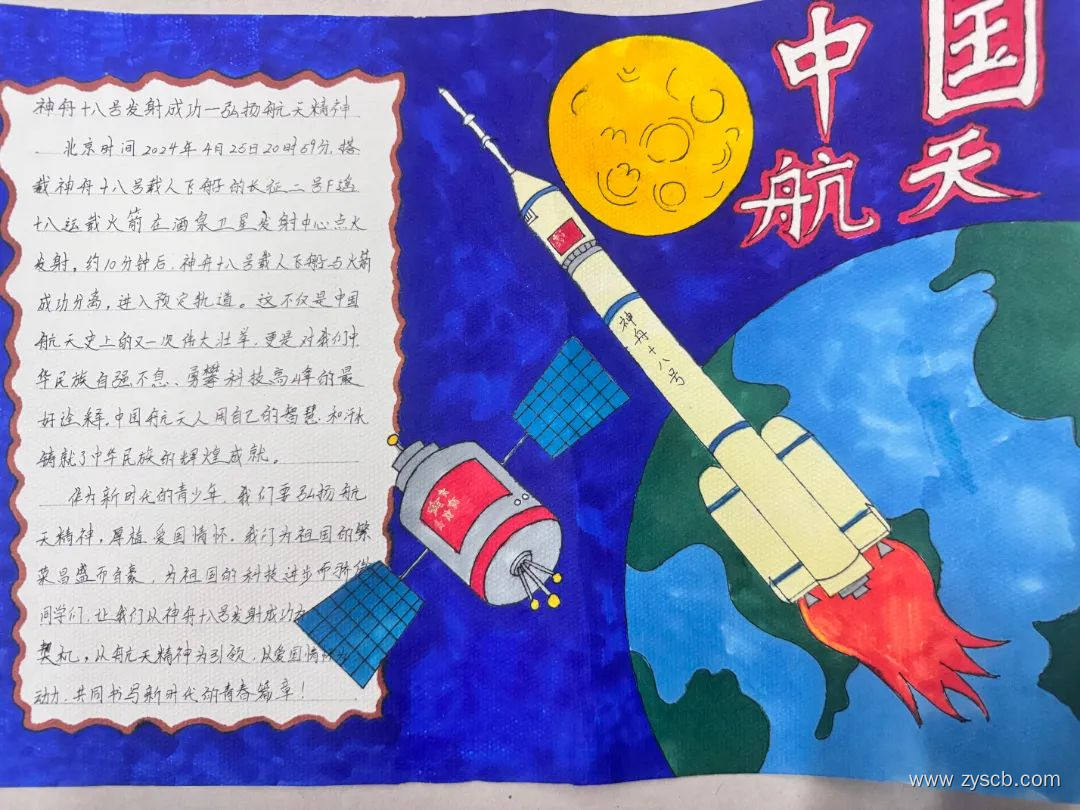 中国
航天
神舟十八号
神舟十八号发射成功—弘扬航天精神
北京时间2024年4月25日20时59分,搭
载神舟十八号载人飞船的长征二号F遥
十八运载火箭在酒泉卫星发射中心点火
发射,约10分钟后,神舟十八号载人飞船与火箭
成功分离,进入预定轨道。这不仅是中国
航天史上的又一次伟大壮举,更是对我们中
华民族自强不息、勇攀科技高峰的最
好诠释,中国航天人用自己的智慧和汗水
铸就了中华民族的辉煌成就。
作为新时代的青少年,我们要弘扬航
天精神,厚植爱国情怀。我们为祖国的繁
荣昌盛而自豪,为祖国的科技进步而骄傲
同学们,让我们以神舟十八号发射成功
契机,以航天精神为引领,以爱国情怀为
动力,共同书写新时代的青春篇章!
www.zyscb.com